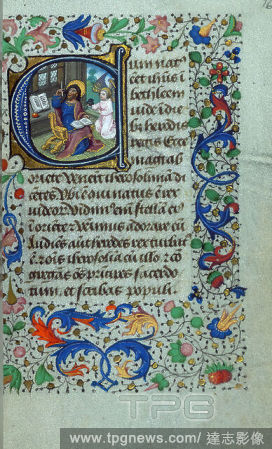 16
um nat
cet ihus i
bethleem
iude i die
bz herodis
regis ecce
magi ab
oriete venert iherosolima di
cetes Vbi e qui natus e rex
iudeor Vidim9 em stella ei9
i oriete et venimus adorare eu
Audies aut herodes rex turbat9
e et ois iherosolia cu illo et co
gregas oes pricipes sacerdo
tum et scribas populi
TPG
www.tpgnews.com/ 達志影像